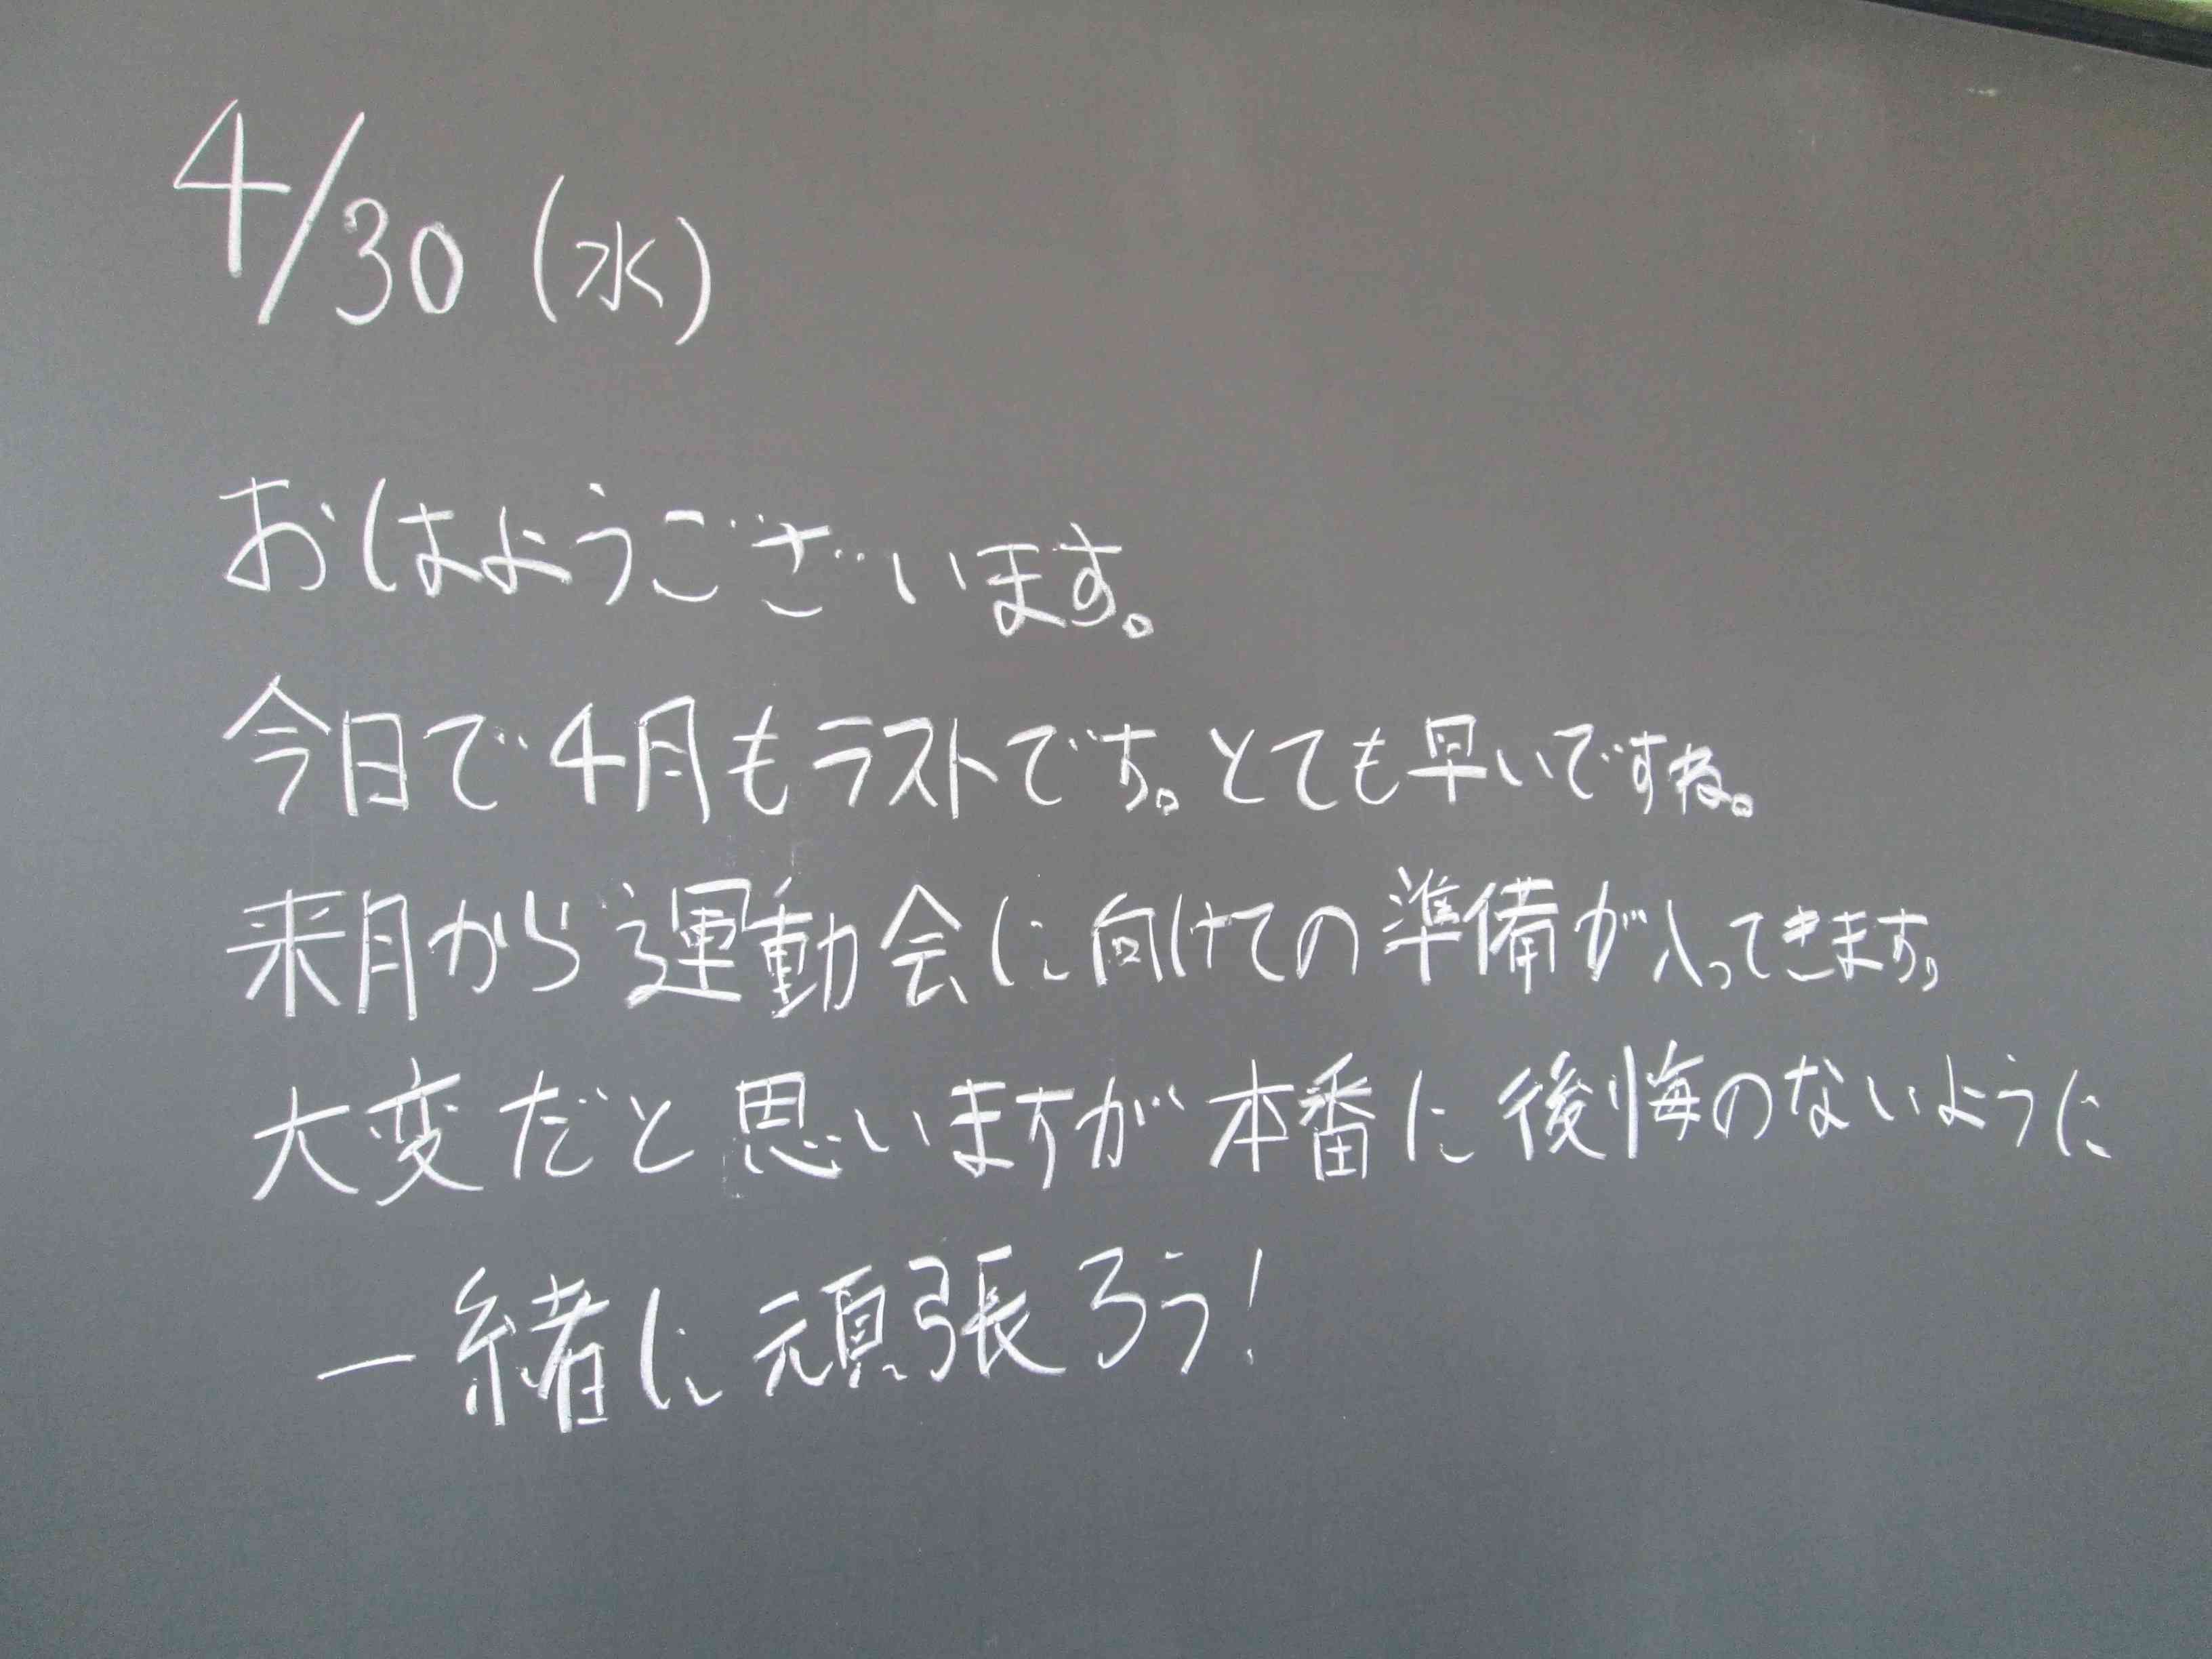 4/30(水)
おはようございます。
今日で4月もラストです。とても早いですね。
来月から運動会に向けての準備が入ってきます。
大変だと思いますが本番に後悔のないように
一緒に頑張ろう!